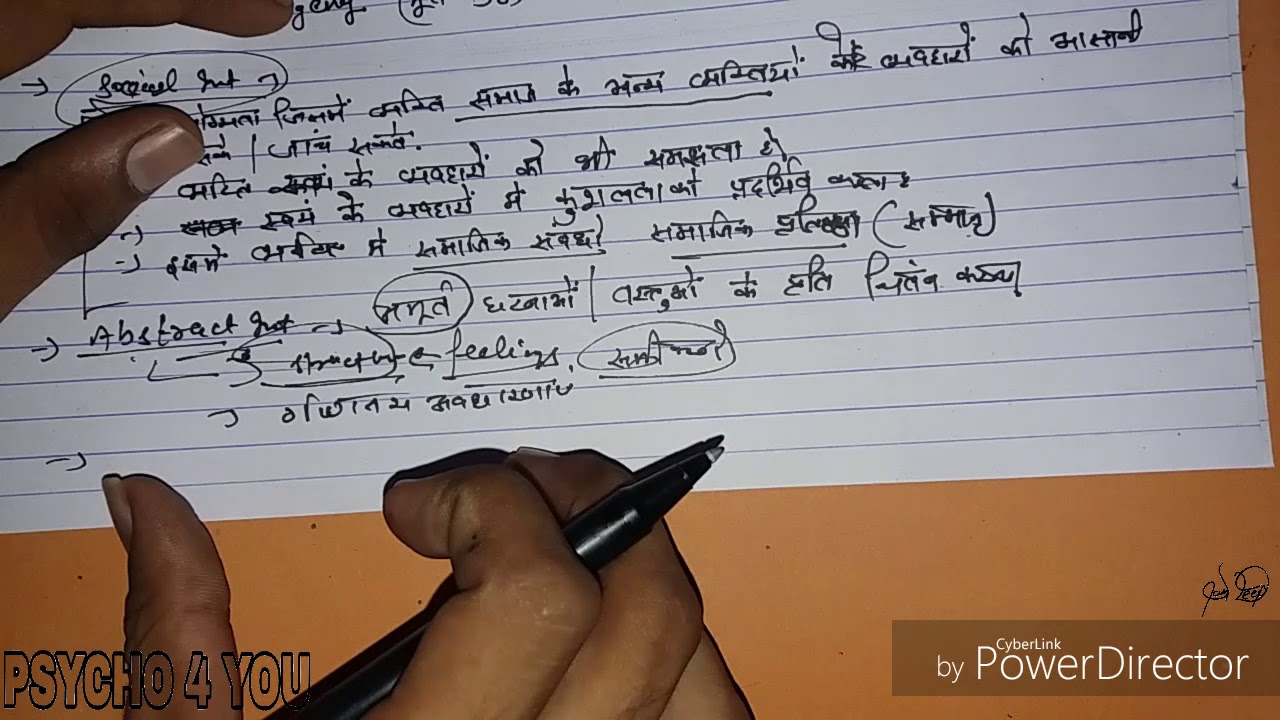 → Social Int →
जिसमें व्यक्ति समाज के अन्य व्यक्तियों के व्यवहारों को आसानी
सके / जाचं सकते.
व्यक्ति के व्यवहारों को भी समझता है
→ स्वयं के व्यवहारों में कुशलता को प्रदर्शित करता
→ इसमें व्यक्ति में समाजिक संबंधों समाजिक (सम्मान)
→ Abstract Int → अमूर्त घटनाओं / वस्तुओं के प्रति चितंन करना
feelings,
→ गणितिय अवधारणाएं
→
PSYCHO 4 YOU
CyberLink
by PowerDirector